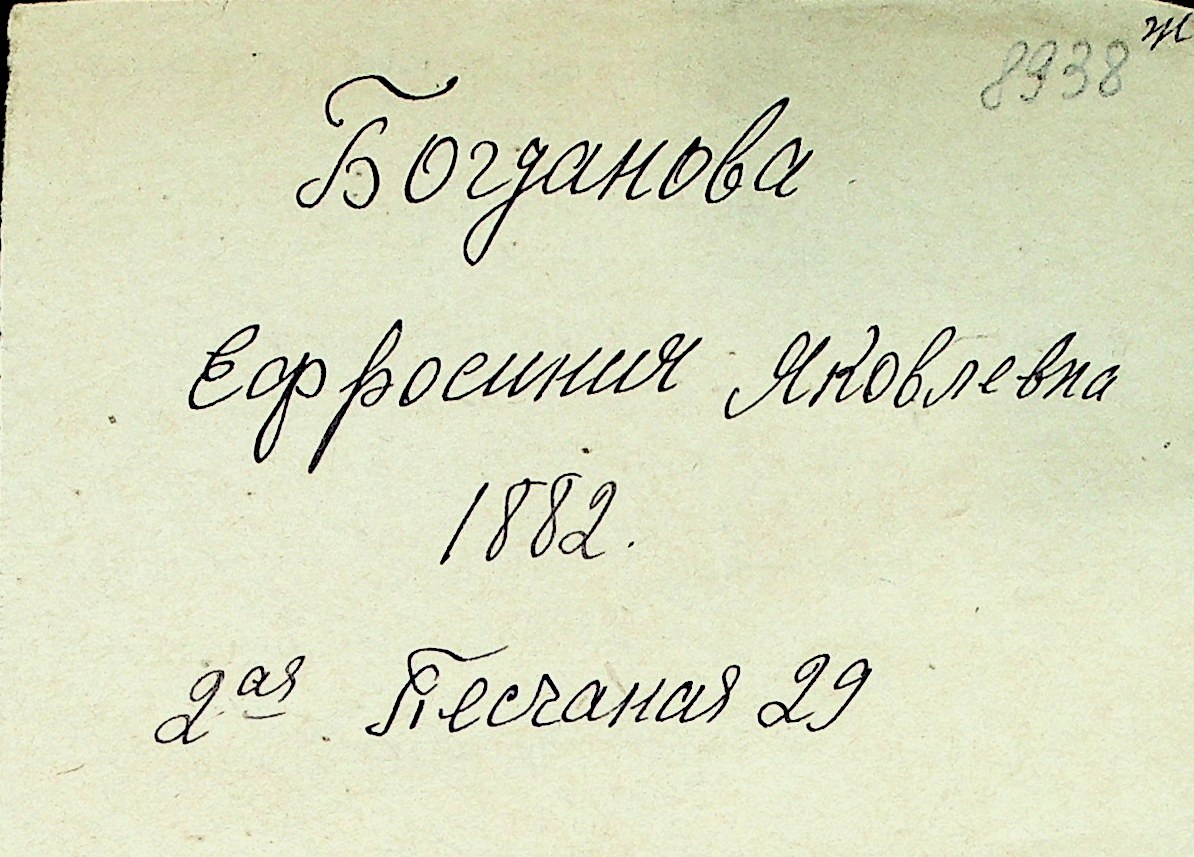 ж
8938
Богданова
Ефросиния Яковлевна
1882.
2ая Песчаная 29